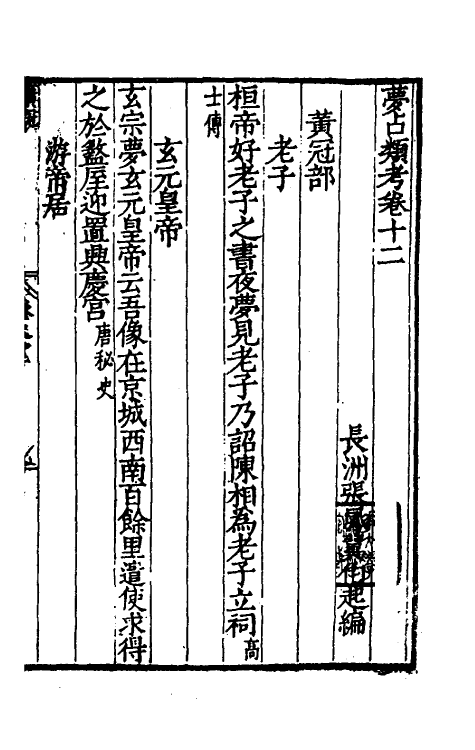 夢占類考卷十二
長洲張鳳翼伯起編
黃冠部
老子
桓帝好老子之書夜夢見老子乃詔陳相為老子立祠高
士傳
玄元皇帝
玄宗夢玄元皇帝云吾像在京城西南百餘里遣使求得
之於盩厔迎置興慶宮唐秘史
游帝居